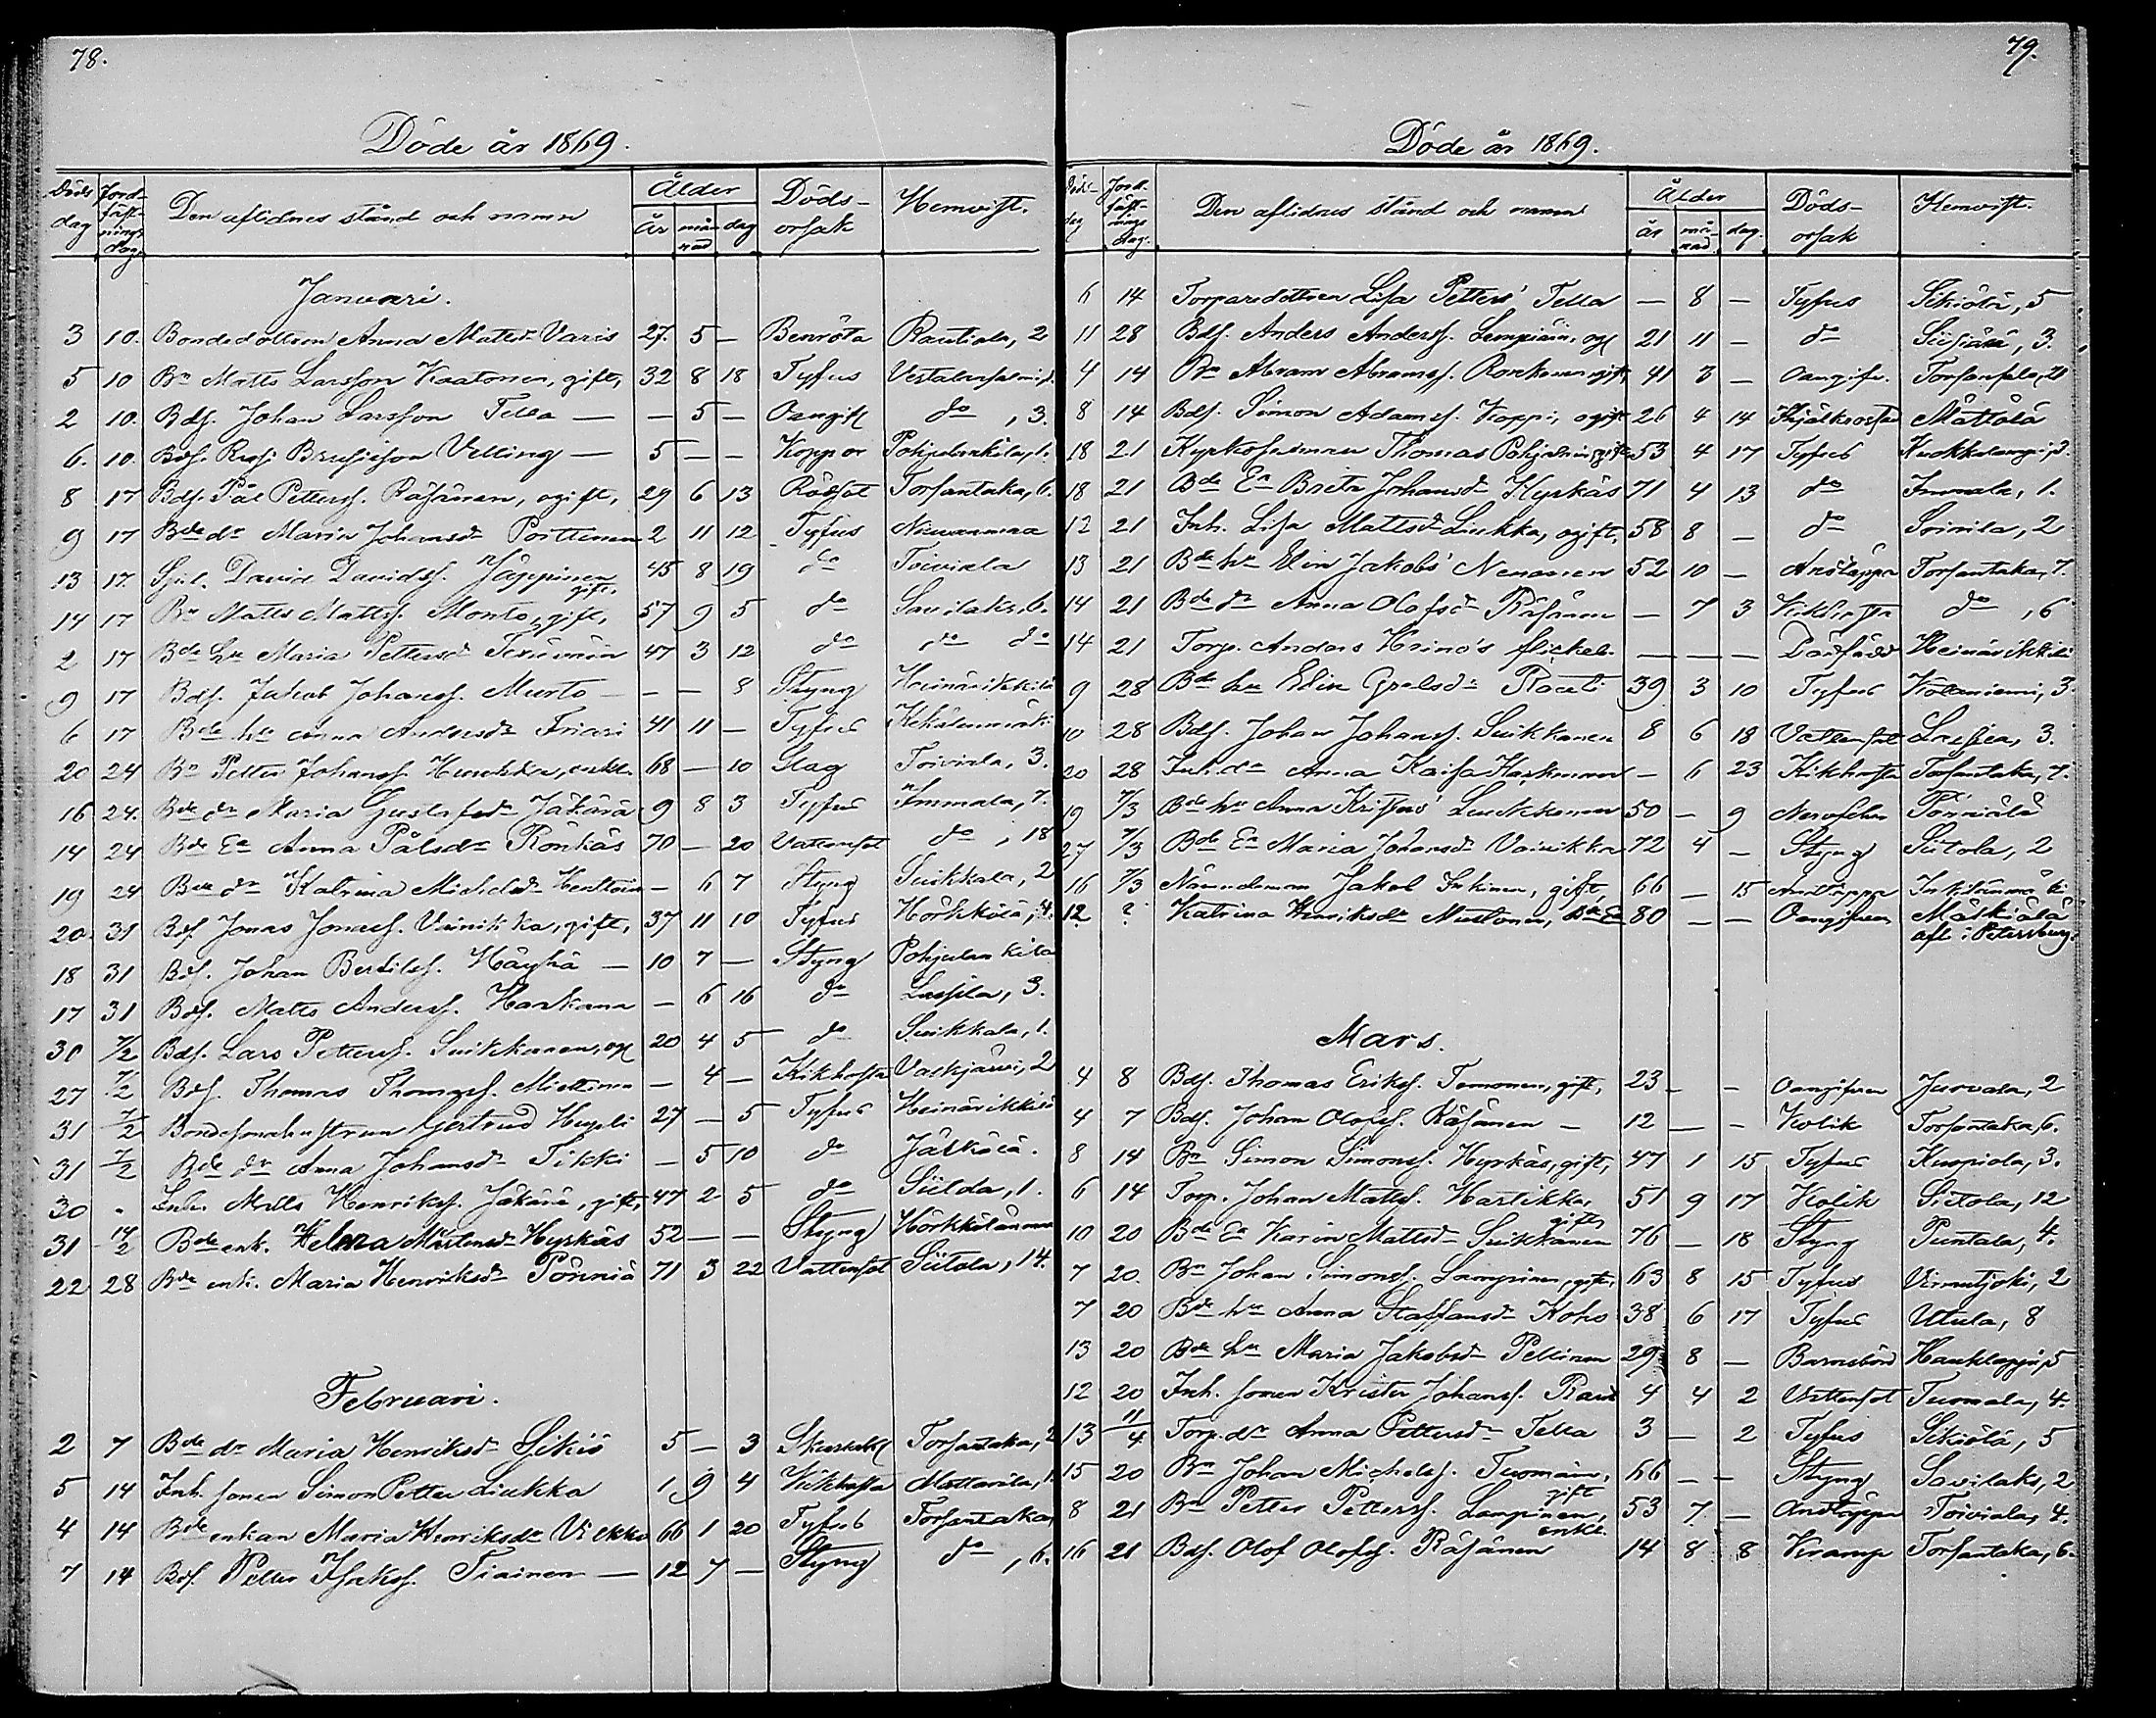 78.
Döde år 1869.
Döds dag Jordfästnings dag Den aflidnes stånd och namn Ålder år månad dag Dödsorsak Hemvist.
Januari.
3 10. Bondedottren Anna Mattsdr Varis 27. 5 — Benröta Rautiala, 2
5 10 Bn Matts Larsson Kaatonen, gift, 32 8 18 Tyfus
2 10. Bds. Johan Larsson Tella — — 5 — Oangif do, 3.
6. 10. Bds. Velling — 5 — — Koppor
8 17 Bds. Pål Petterss. Räsänen, ogift, 29 6 13 Rödsot Torsantaka, 6.
9 17 Bde dr Maria Johansdr Porttinen 2 11 12 Tyfus
13 17. David Davidss. Jäppinen gift, 45 8 19 do Toiviala
14 17 Bn Matts Mattss. Monto, gift, 57 9 5 do Savilaks, 6.
2 17 Bde hu Maria Pettersdr 47 3 12 do do do
9 17 Bds. Jakob Johanss. Murto — — — 8 Styng Heinärikkilä
6 17 Bde hu Anna Andersdr 41 11 — Tyfus
20 24 Bn Petter Johanss. enkl. 68 — 10 Slag Toiviala, 3.
16 24. Bde dr Maria Gustafsdr Jäkärä 9 8 3 Tyfus Immala, 7.
14 24 Bde Ea Anna Pålsdr Rönkäs 70 — 20 Vattensot do, 18
19 24 Bde dr Katrina Michelsdr — 6 7 Styng Suikkala, 2
20. 31 Bds. Jonas Jonass. Vainikka, gift, 37 11 10 Tyfus Hörkkölä, 4.
18 31 Bds. Johan Bertilss. Häyhä — 10 7 — Styng Pohjalankila
17 31 Bds. Matts Anderss. Harkama — 6 16 do Lassila, 3.
30 7/2 Bds. Lars Petterss. Suikkanen, og 20 4 5 do Suikkala, 1.
27 7/2 Bds. Thomas Thomass. Miettinen — 4 — Kikhosta Vaskjärvi, 2
31 7/2 Bondesonehustrun Gertrud 27 — 5 Tyfus Heinärikkilä
31 7/2 Bde dr Anna Johansdr Tikki — 5 10 do Jäskölä.
30 " Inh. Matts Henrikss. Jäkärä, gift, 47 2 5 do Siitola, 1.
31 14/2 Bde enk. Helena Mårtensdr Hyrkäs 52 — — Styng
22 28 Bde enk. Maria Henriksdr Pönniä 71 3 22 Vattensot Siitola, 14.
Februari.
2 7 Bde dr Maria Henriksdr Sikiö 5 — 3 Torsantaka, 2
5 14 Inh. sonen Simon Petter Liukka 1 9 4 Kikhosta Mattarila, 1.
4 14 Bde enkan Maria Henriksdr Vilkko 66 1 20 Tyfus Torsantaka,
7 14 Bds. Petter Isakss. Tiainen — 12 7 — Styng do, 6.
79.
Döde år 1869.
Döds-dag Jordfästnings dag. Den aflidnes stånd och namn Ålder år månad dag. Dödsorsak Hemvist.
6 14 Torparedottren Lisa Petters' Tella — 8 — Tyfus Sikiölä, 5
11 28 Bds. Anders Anderss. Lempiäin, og 21 11 — do 3.
4 14 Bn Abram Abramss. Ronkanen gift, 41 3 — Oangifv.
8 14 Bds. Simon Adamss. Koppi, ogift 26 4 14 Mattola
18 21 Kyrkosexman Thomas Pohjalain, gift 53 4 17 Tyfus
18 21 Bde Ea Brita Johansdr Hyrkäs 71 4 13 do Immala, 1.
12 21 Inh. Lisa Mattsdr Liukka, ogift, 58 8 — do 2
13 21 Bde hu Elin Jakobs' Nenonen 52 10 — Torsantaka, 7.
14 21 Bde dr Anna Olofsdr Räsänen — 7 3 Kikhosta do, 6
14 21 Torp. Anders Heino's flickeb. — — — Dödfödd Heinärikkilä
9 28 Bde hu Elin Rouhi 39 3 10 Tyfus 3.
10 28 Bds. Johan Johanss. Suikkanen 8 6 18 Vattensot Lassila, 3.
20 28 Inh. dr Anna Kaisa — 6 23 Kikhosta Torsantaka, 7.
19 7/3 Bde hu Anna Kristers' Luukkanen 50 — 9 Nervfeber Pönniälä
27 7/3 Bde Ea Maria Johansdr Vainikka 72 4 — Styng Siitola, 2
16 7/3 Nämndeman Jakob Inkinen, gift, 66 — 15 Andtäppa
12. ? Katrina Henriksdr Mustonen, Bde Ea 80 — — Oangifven Mäskälä afl. i Petersburg.
Mars.
4 8 Bds. Thomas Erikss. Temonen, gift, 23 — — Oangifven Jurvala, 2
4 7 Bds. Johan Olofss. Räsänen — 12 — — Kolik Torsantaka, 6.
8 14 Bn Simon Simonss. Hyrkäs, gift, 47 1 15 Tyfus Kurpiola, 3.
6 14 Torp. Johan Mattss. Hartikka, gift 51 9 17 Kolik Siitola, 12
10 20 Bde Ea Karin Mattsdr Suikkanen 76 — 18 Styng Puntala, 4.
7 20. Bn Johan Simonss. Lampinen, gift, 63 8 15 Tyfus Virmutjoki, 2
7 20 Bde hu Anna Staffansdr Koho 38 6 17 Tyfus Utula, 8
13 20 Bde hu Maria Jakobsdr Pellinen 29 8 — Barnsbörd 5
12 20 Inh. sonen Krister Johanss. 4 4 2 Vattensot Tuomala, 4.
13 11/4 Torp. dr Anna Pettersdr Tella 3 — 2 Tyfus Sikiölä, 5
15 20 Bn Johan Michelss. Tuomain, gift 66 — — Styng Savilaks, 2
8 21 Bn Petter Petterss. Lampinen, enkl. 53 7 — Andtäppa Toiviala, 4.
16 21 Bds. Olof Olofss. Räsänen 14 8 8 Kramp Torsantaka, 6.